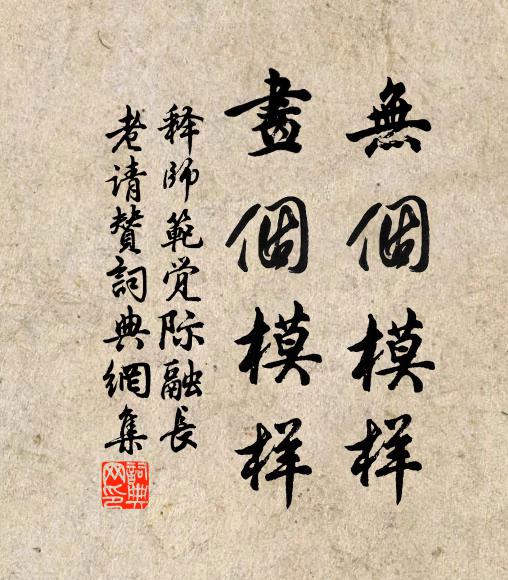 無個模样
畫個模样
释師範觉际融長
老请贊詞典網集
詞典网印